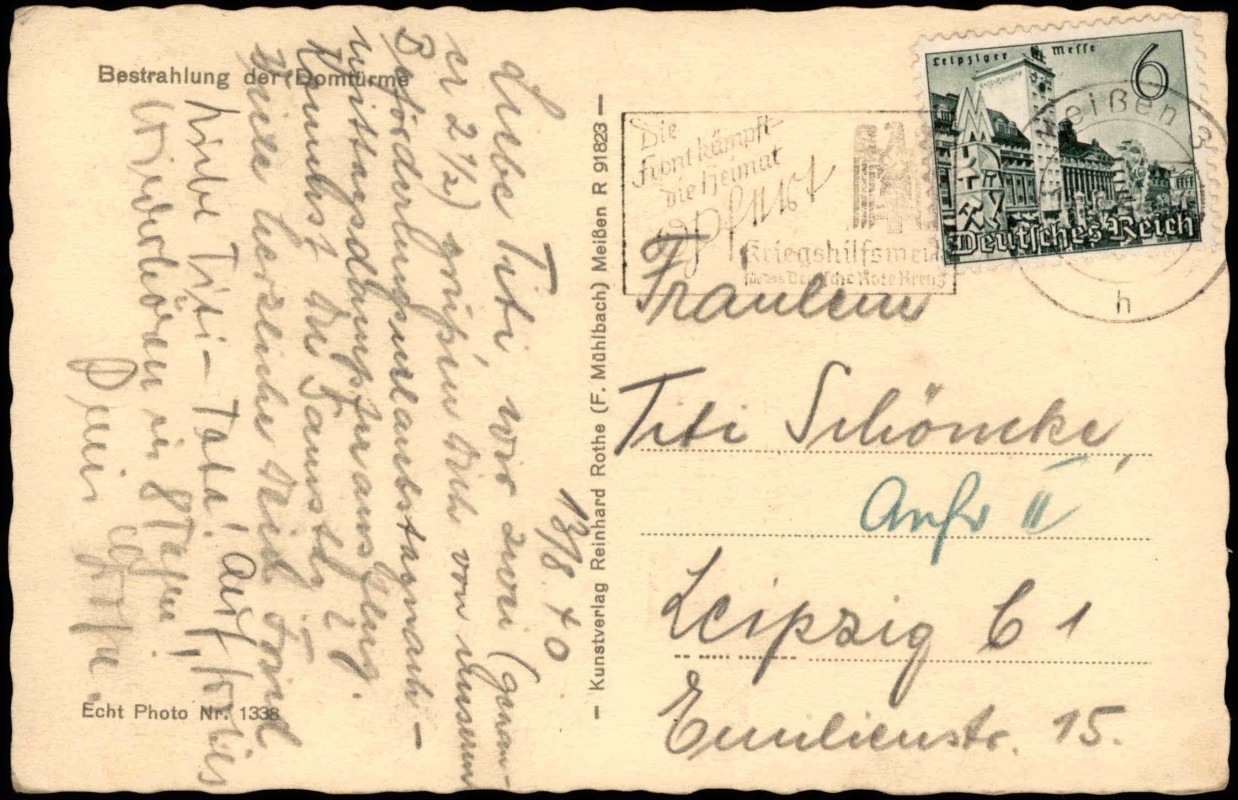 Bestrahlung der Domtürme
13/8. 40
Liebe Titi, wir zwei (genau-
er 2 1/2) grüßen Dich von unserem
Beförderungsurlaubstagnach-
mittagsdampferausflug.
Kannst Du Dir
herzliche
Liebe Titi-Tata! Auf frohes
Wiederhören in 8 Tagen!
Dein
Echt Photo Nr. 1338
– Kunstverlag Reinhard Rothe (F. Mühlbach) Meißen R 91823 –
Die
Front kämpft
die Heimat
opfert
Kriegshilfswerk
für das Deutsche Rote Kreuz
Leipziger Messe
6
Deutsches Reich
Meißen 3
h
Fräulein
Titi Schömcke,
Anfr II
Leipzig C 1
Emilienstr. 15.